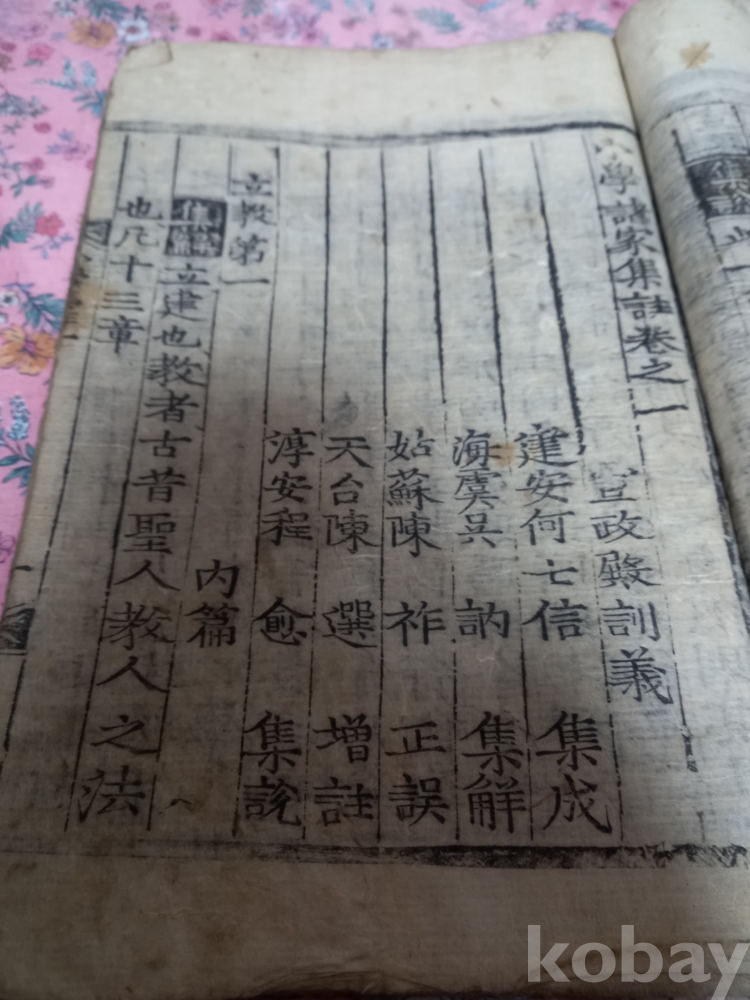 小學諸家集註卷之一
宣政殿訓義
建安何士信 集成
海虞吳 訥 集解
姑蘇陳 祚 正誤
天台陳 選 增註
淳安程 愈 集說
立敎第一 內篇
集解 立建也教者古昔聖人教人之法
也凡十三章
kobay